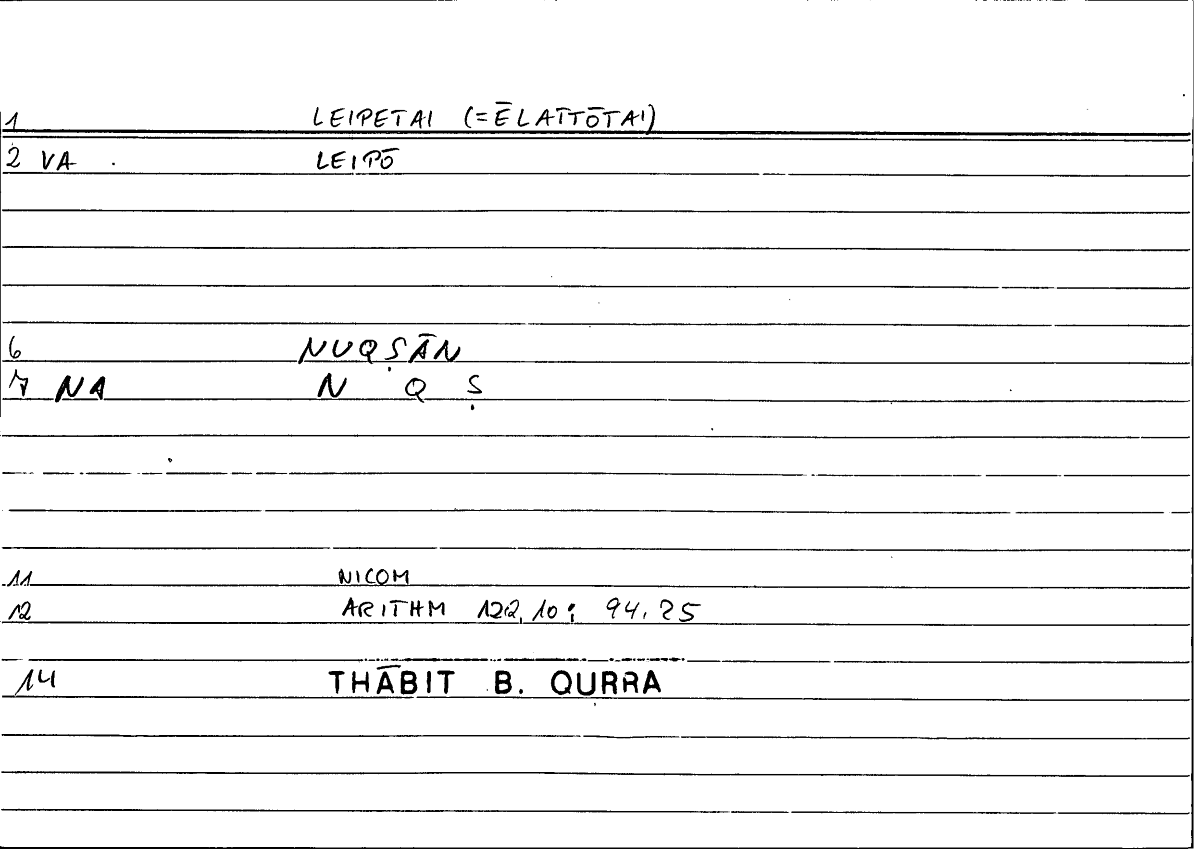 1 LEIPETAI (=ĒLATTŌTAI)
2 VA . LEIPŌ
6 NUQṢĀN
7 NA N Q Ṣ
11 NICOM
12 ARITHM 122,10; 94.25
14 THĀBIT B. QURRA